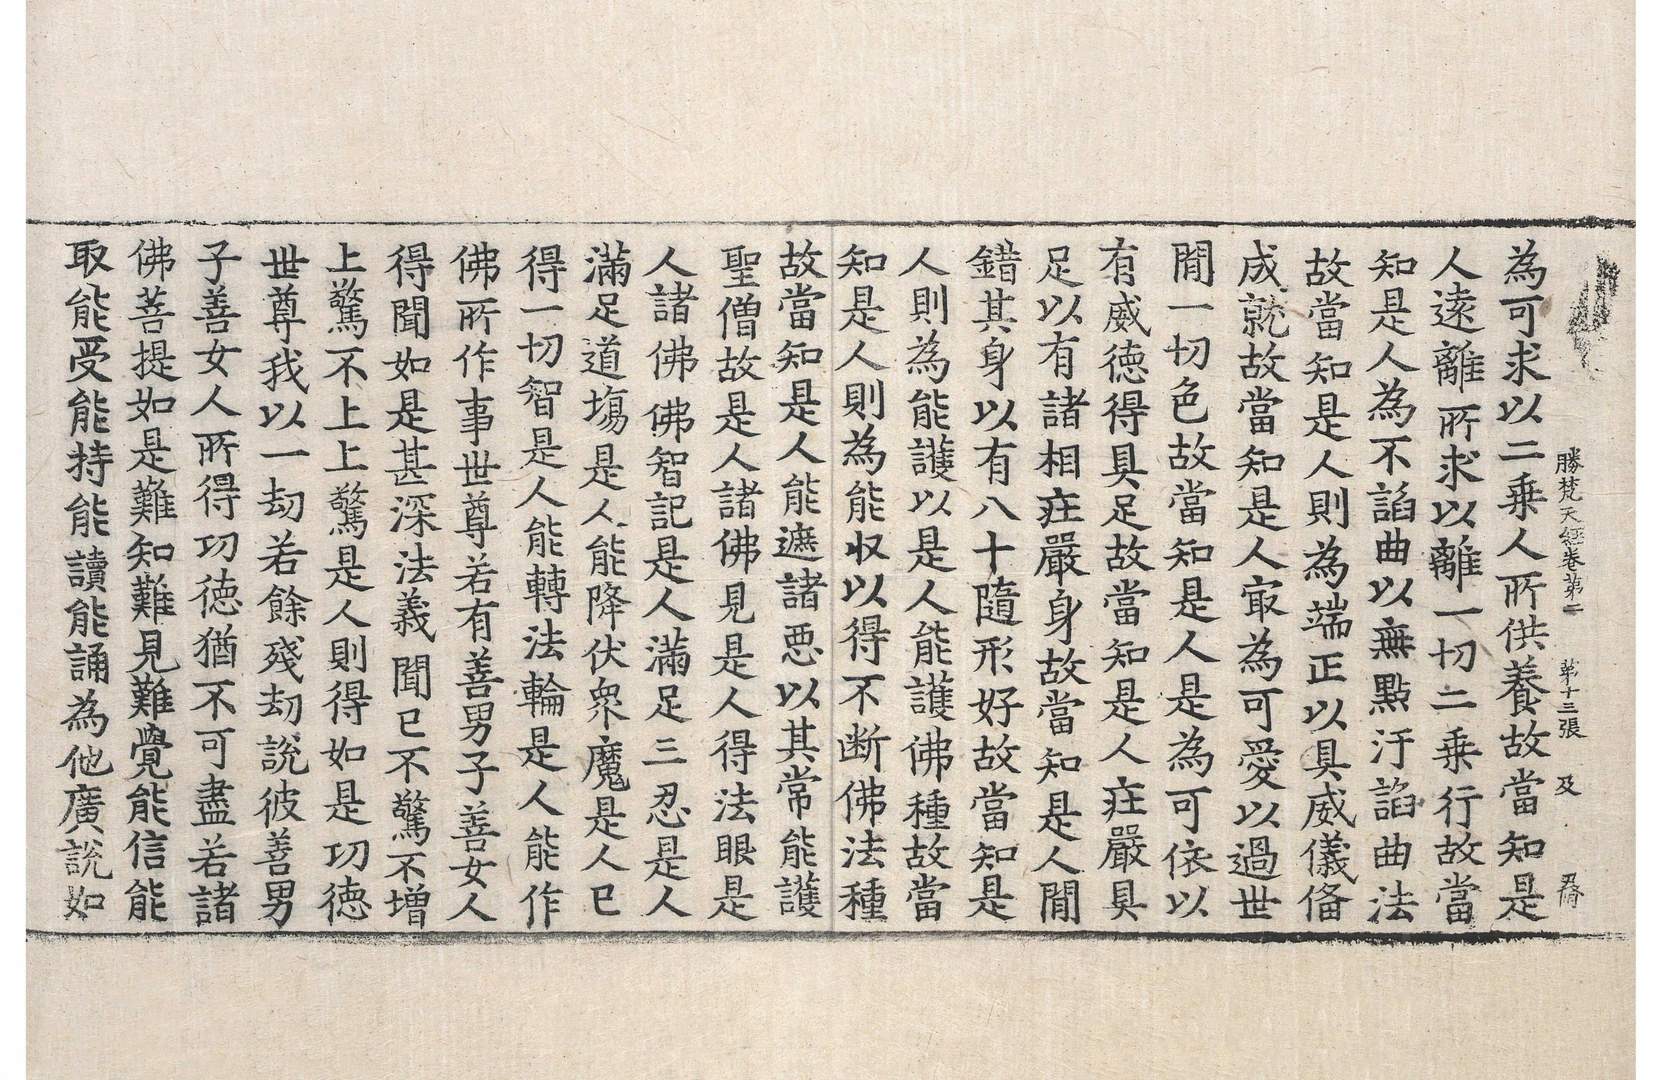 勝梵天經卷第二 第十三張 及
為可求以二乗人所供養故當知是
人遠離所求以離一切二乗行故當
知是人為不諂曲以無點汙諂曲法
故當知是人則為端正以具威儀俻
成就故當知是人㝡為可愛以過世
閒一切色故當知是人是為可依以
有威德得具足故當知是人庄嚴具
足以有諸相庄嚴身故當知是人閒
錯其身以有八十隨形好故當知是
人則為能護以是人能護佛種故當
知是人則為能収以得不断佛法種
故當知是人能遮諸悪以其常能護
聖僧故是人諸佛見是人得法眼是
人諸佛佛智記是人滿足三忍是人
滿足道塲是人能降伏衆魔是人已
得一切智是人能轉法輪是人能作
佛所作事世尊若有善男子善女人
得聞如是甚深法義聞已不驚不增
上驚不上上驚是人則得如是功徳
世尊我以一劫若餘殘劫說彼善男
子善女人所得功徳猶不可盡若諸
佛菩提如是難知難見難覺能信能
取能受能持能讀能誦為他廣說如